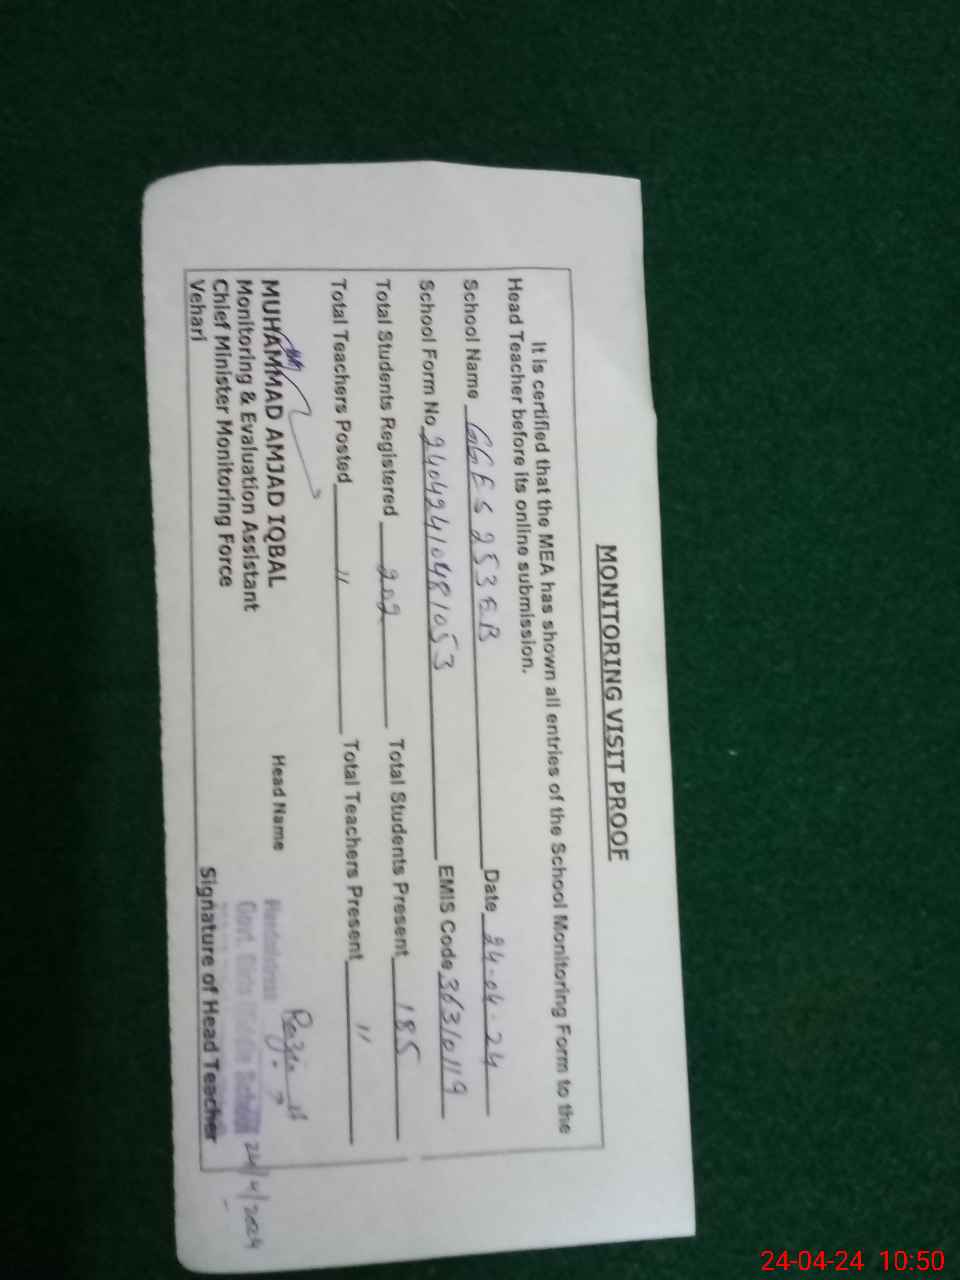 MONITORING VISIT PROOF
It is certified that the MEA has shown all entries of the School Monitoring Form to the
Head Teacher before its online submission.
School Name GGES 253EB Date 24-04-24
School Form No 24042410481053 EMIS Code 36310119
Total Students Registered 202 Total Students Present 185
Total Teachers Posted 11 Total Teachers Present 11
MUHAMMAD AMJAD IQBAL Head Name
Monitoring & Evaluation Assistant
Chief Minister Monitoring Force Govt. Girls School 24/4/2024
Vehari Signature of Head Teacher
24-04-24 10:50